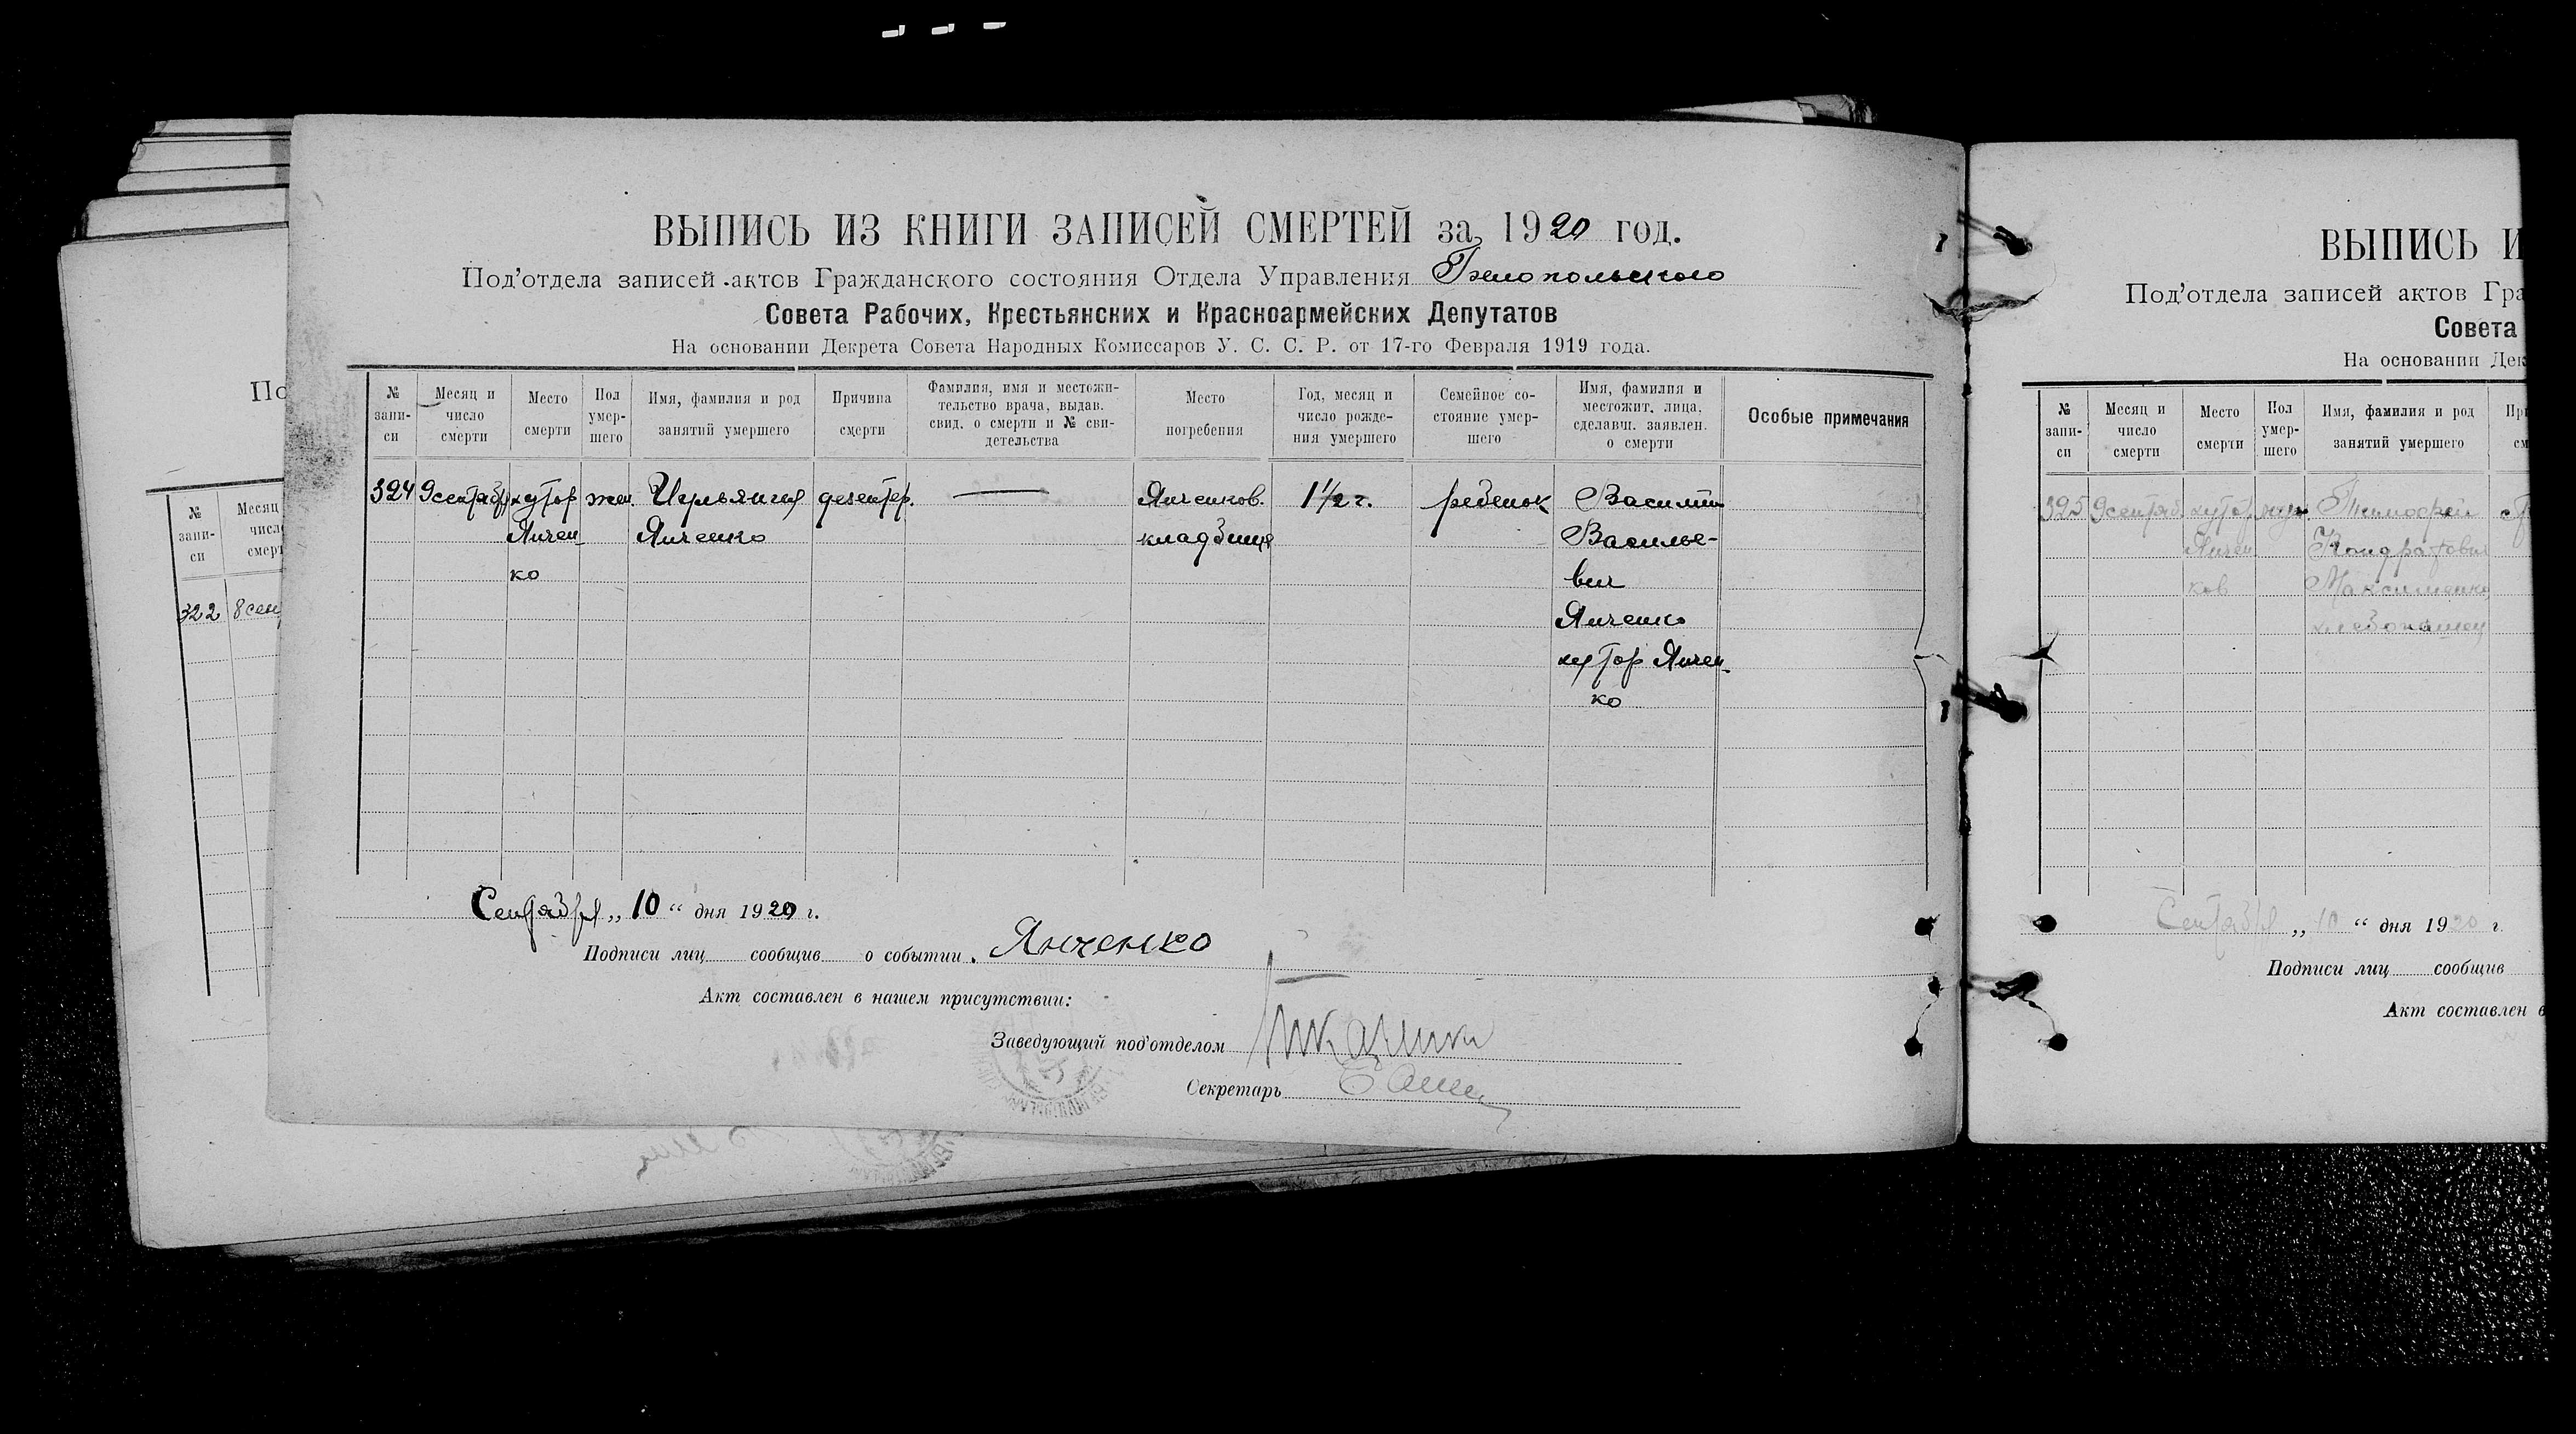 ВЫПИСЬ ИЗ КНИГИ ЗАПИСЕЙ СМЕРТЕЙ за 1920 год.
Под'отдела записей актов Гражданского состояния Отдела Управления Белопольского
Совета Рабочих, Крестьянских и Красноармейских Депутатов
На основании Декрета Совета Народных Комиссаров У. С. С. Р. от 17-го Февраля 1919 года.
№ запи-
си
Месяц и
число
смерти
Место
смерти
Пол
умер-
шего
Имя, фамилия и род
занятий умершего
Причина
смерти
Фамилия, имя и местожи-
тельство врача, выдав.
свид. о смерти и № сви-
детельства
Место
погребения
Год, месяц и
число рожде-
ния умершего
Семейное со-
стояние умер-
шего
Имя, фамилия и
местожит. лица,
сделавш. заявлен.
о смерти
Особые примечания
324 9 сентября хутор жен. дезентер. Янченков. 1½ г. ребенок Василий
Янчен- Янченко кладбище Василье-
ко вич
Янченко
хутор Янчен-
ко
Сентября „ 10 “ дня 1920 г.
Подписи лиц сообщив о событии. Янченко
Акт составлен в нашем присутствии:
Заведующий под'отделом
Секретарь
По
№
запи-
си
Месяц
числ
смерт
322 8 сен
ВЫПИСЬ И
Под'отдела записей актов Гра
Совета
На основании Дек
№
запи-
си
Месяц и
число
смерти
Место
смерти
Пол
умер-
шего
Имя, фамилия и род
занятий умершего
При
см
325 9 сентяб хутор муж. Тимофей
Янчен Кондратович
ков Максименко
хлебопашец
Сентября „ 10 “ дня 1920 г.
Подписи лиц сообщив
Акт составлен в